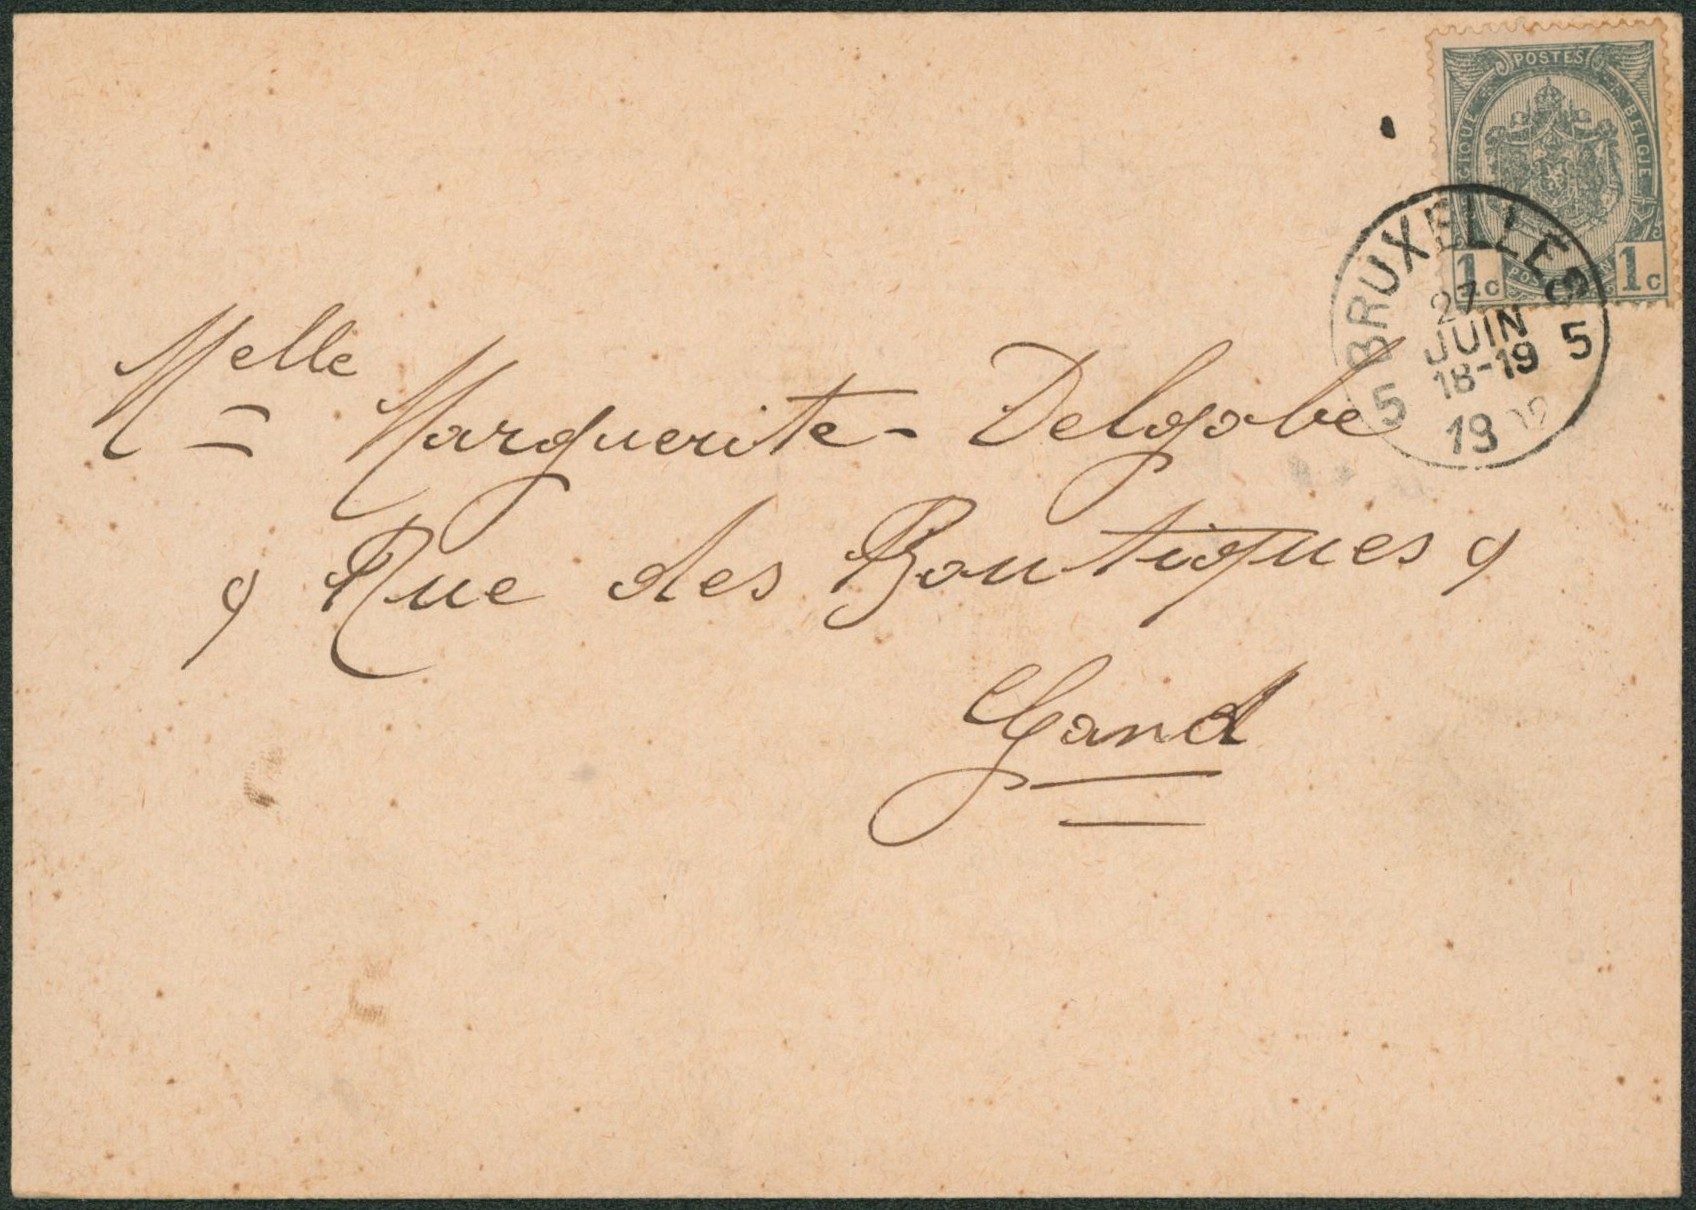 POSTES
BELGIQUE BELGIE
1c 1c
BRUXELLES
27
JUIN
18-19
5 5
1902
Melle Marguerite Delgobe
9 Rue des Boutiques 9
Gand